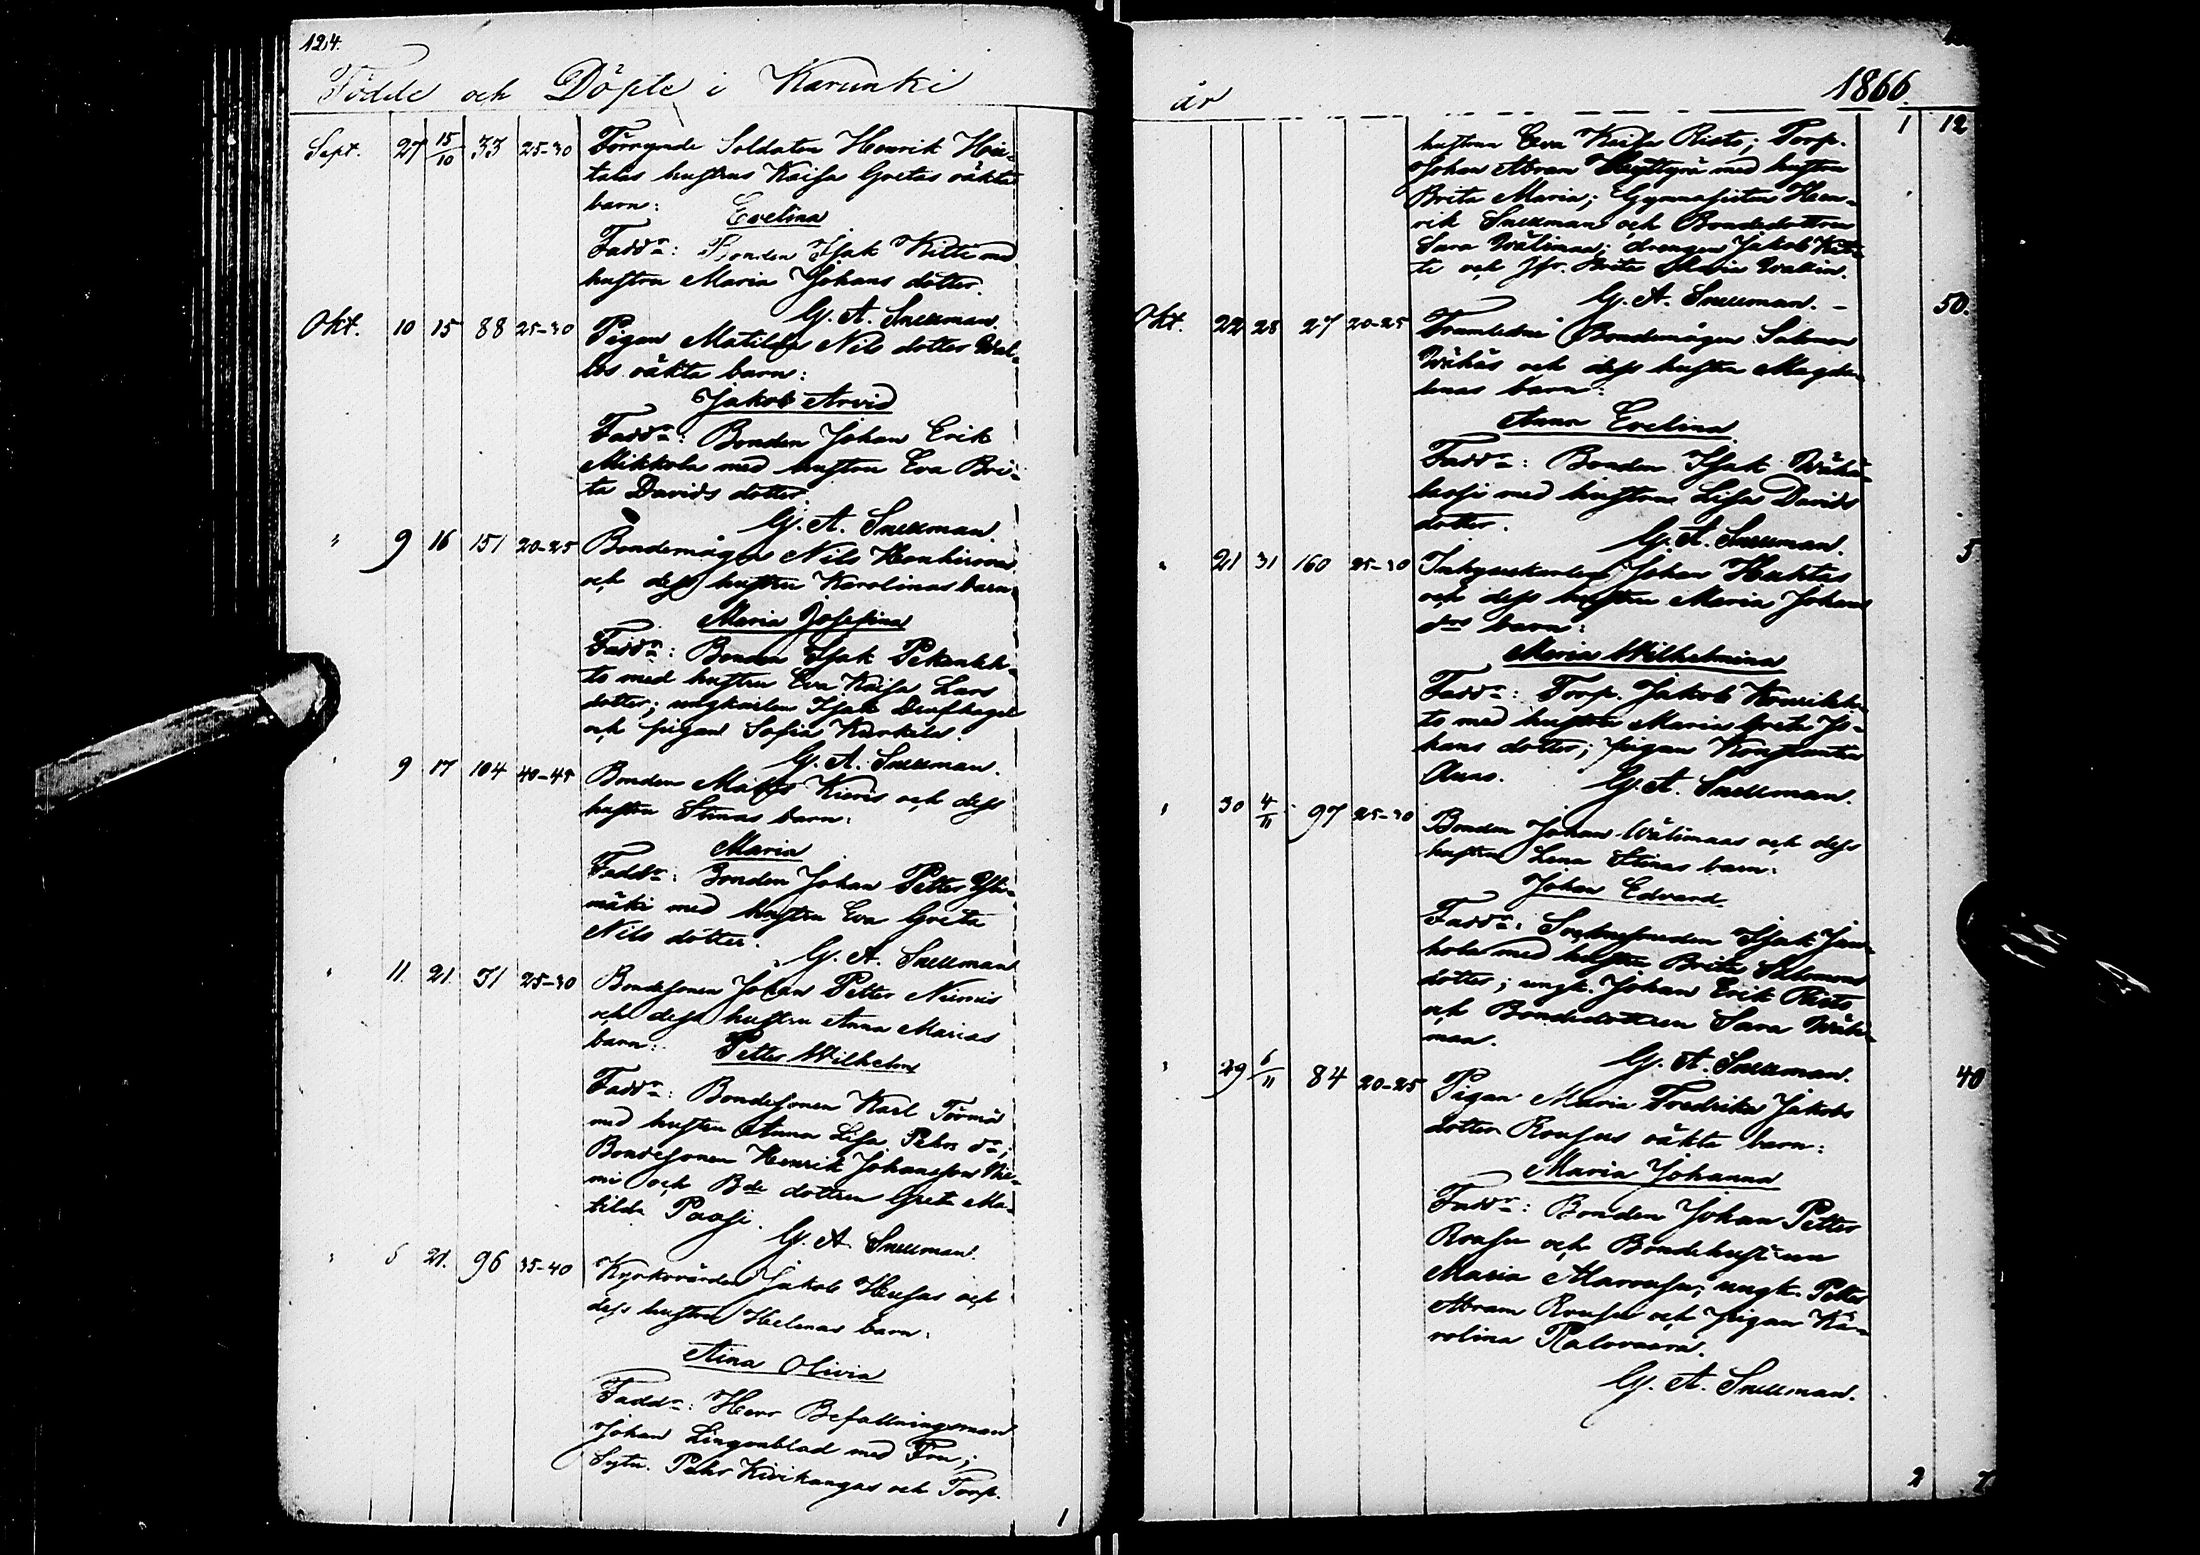 124.
Födde och Döpte i Karunki
Sept. 27 15/10 33 25-30 Förrymde Soldaten Henrik Hie-
talas hustrus Kaisa Gretas oäkta
barn: Evelina
Faddr: Bonden Isak Kitti med
hustru Maria Johans dotter.
G. A. Snellman.
Okt. 10 15 88 25-30 Pigan Matilda Nils dotter
oäkta barn:
Jakob Arvid
Faddr: Bonden Johan Erik
Mikkola med hustru Eva Bri-
ta Davids dotter.
G. A. Snellman.
" 9 16 151 20-25 Bondemågen Nils
och dess hustru Karolinas barn:
Maria Josefina
Faddr: Bonden Isak Pekanleh-
to med hustru Eva Kaisa Lars
dotter; ungkarlen Isak
och pigan Sofia Karkela.
G. A. Snellman.
" 9 17 104 40-45 Bonden Matts Kieris och dess
hustru Stinas barn:
Maria
Faddr: Bonden Johan Petter Yli-
mäki med hustru Eva Greta
Nils dotter.
G. A. Snellman
" 11. 21. 31 25-30 Bondesonen Johan Petter Niemis
och dess hustru Anna Marias
barn: Petter Wilhelm
Faddr: Bondesonen Karl Törmä
med hustru Anna Lisa Pehrs dr;
Bondesonen Henrik Johansson Nie-
mi och Bde dottren Greta Ma-
tilda Paasi.
G. A. Snellman
" 5 21. 96 35-40 Kyrkovärden Jakob Husas och
dess hustru Helenas barn:
Aina Olivia
Faddr: Herr Befallningsman
Johan Lingonblad med Fru;
Sytn. Pehr Kivikangas och Torp.
1
år 1866.
hustrun Eva Kaisa Risto; Torp. 1 12
Johan Abram med hustru
Brita Maria; Gymnasisten Hen-
rik Snellman och Bondedottren
Sara Wälimaa; drengen Jakob Kit-
ti och Jfr. Brita Maria Wallin.
G. A. Snellman. -
Okt. 22 28 27 20-25 Framlidne Bondemågen Salomon 50.
och dess hustru Magda-
lenas barn:
Anna Evelina
Faddr: Bonden Isak
med hustru Lisa Davids
dotter.
G. A. Snellman.
" 21 31 160 25-30 Inhyseskarlen Johan Huhtas 5
och dess hustru Maria Johans
drs barn:
Maria Wilhelmina
Faddr: Torp. Jakob
to med hustru Maria Greta Jo-
hans dotter; pigan Konstantia
G. A. Snellman.
" 30 4/11 97 25-30 Bonden Johan Wälimaas och dess
hustru Lena Stinas barn:
Johan Edvard
Faddr: Isak Jun-
kola med hustru Brita Salomons
dotter; ungk. Johan Erik Risto
och Bondedottren Sara Wäli-
maa.
G. A. Snellman.
" 29 6/11 84 20-25 Pigan Maria Fredrika Jakobs 40
dotter Rousus oäkta barn:
Maria Johanna
Faddr: Bonden Johan Petter
Rousu och Bondehustrun
Maria ungk. Petter
Abram Rousu och pigan Ka-
rolina Palovaara.
G. A. Snellman.
2 7